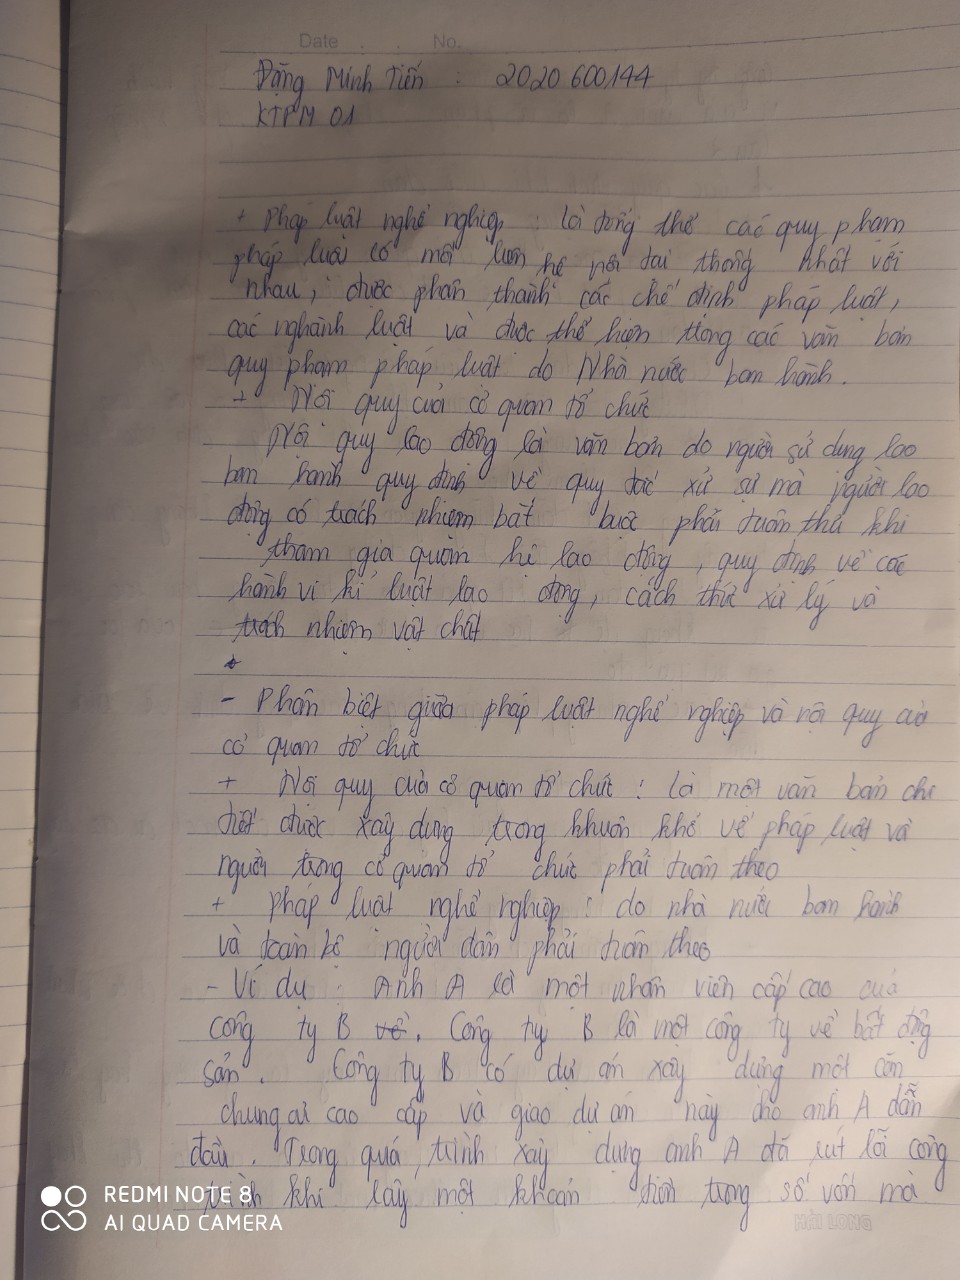 Date . . No.
Đặng Minh Tiến : 2020600144
KTPM 01
+ Pháp luật nghề nghiệp : là tổng thể các quy phạm
pháp luật có mối liên hệ nội tại thống nhất với
nhau, được phân thành các chế định pháp luật,
các nghành luật và được thể hiện trong các văn bản
quy phạm pháp luật do Nhà nước ban hành.
+ Nội quy của cơ quan tổ chức
Nội quy lao động là văn bản do người sử dụng lao
ban hành quy định về quy tắc xử sự mà người lao
động có trách nhiệm bắt buộc phải tuân thủ khi
tham gia quan hệ lao động, quy định về các
hành vi kỉ luật lao động, cách thức xử lý và
trách nhiệm vật chất
- Phân biệt giữa pháp luật nghề nghiệp và nội quy của
cơ quan tổ chức
+ Nội quy của cơ quan tổ chức : là một văn bản chi
tiết được xây dựng trong khuôn khổ về pháp luật và
người trong cơ quan tổ chức phải tuân theo
+ Pháp luật nghề nghiệp : do nhà nước ban hành
và toàn bộ người dân phải tuân theo
- Ví dụ : Anh A là một nhân viên cấp cao của
công ty B về. Công ty B là một công ty về bất động
sản. Công ty B có dự án xây dựng một căn
chung cư cao cấp và giao dự án này cho anh A dẫn
đầu. Trong quá trình xây dựng anh A đã rút lõi công
trình khi lấy một khoản tiền trong số vốn mà
HẢI LONG
REDMI NOTE 8
AI QUAD CAMERA